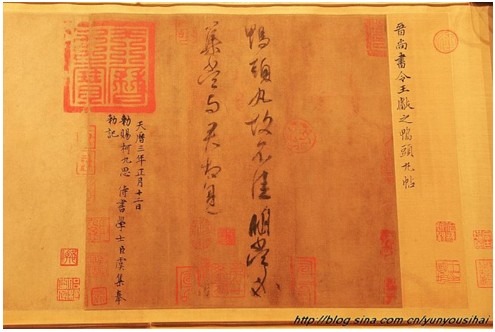 晉尚書令王獻之鴨頭丸帖
鴨頭丸故不佳明當必
集當與君相見
天曆之寶
天曆三年正月十二日
勑賜柯九思侍書學士臣虞集奉
勑記
http://blog.sina.com.cn/yunyousihai